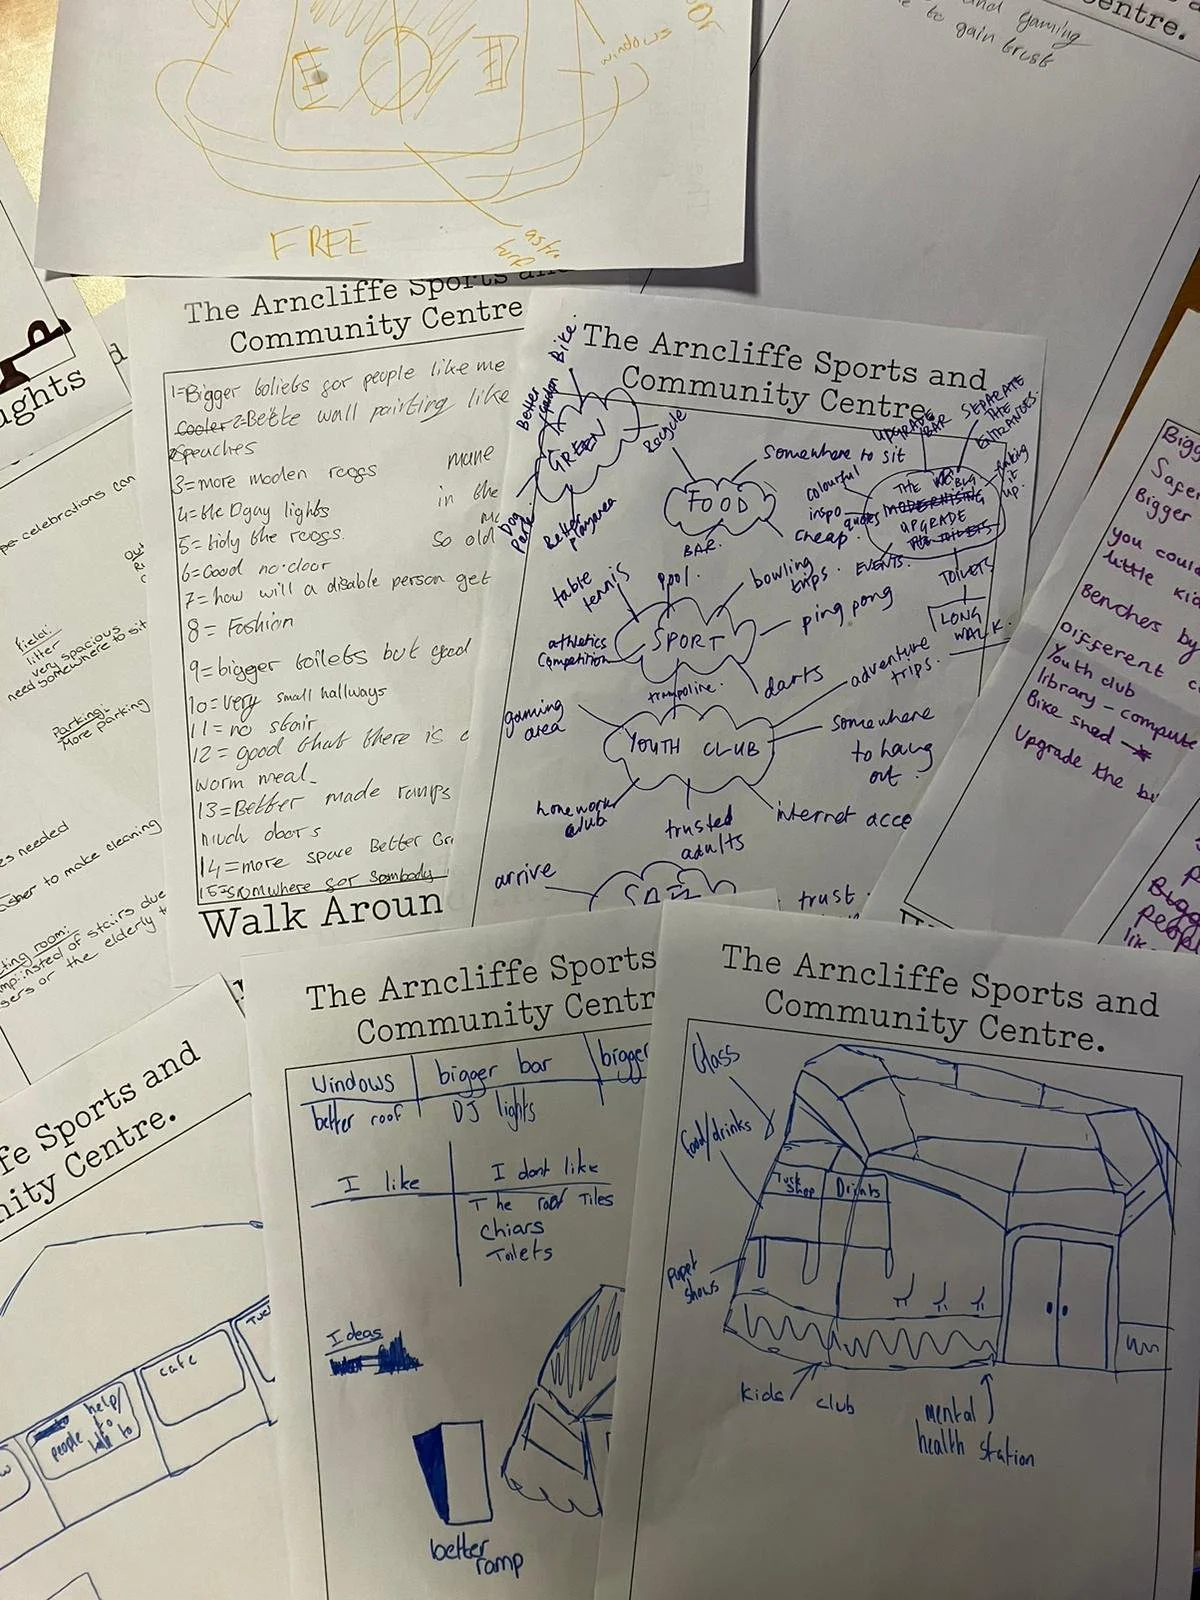 windows
FREE
astro
turf
Centre.
and gaming
to gain trust
The Arncliffe Sports and
Community Centre
1=Bigger toliets for people like me
Cooler 2=Bette wall painting like
Speaches
3=more moden roogs
mane
in the
5=tidy the roogs.
So old
6=Good no.door
7=how will a disable person get
8=Fashion
9=bigger toilets but good
10=very small hallways
11=no stair
12=good that there is
worm meal
13=Better made ramps
much doors
14=more space Better
15=somwhere for sombody
Walk Aroun
The Arncliffe Sports and
Community Centre.
Bike.
Better
GREEN
Recycle
Dog
Park.
Better
playarea
FOOD
Somewhere to sit
cheap.
BAR.
UPGRADE
BAR
SEPARATE
THE
ENTRANCES.
colourful
inspo
quotes
THE
MODERNISING
UPGRADE
THE TOILETS
making
it
up.
EVENTS.
TOILETS
LONG
WALK.
SPORT
table
tennis
pool.
bowling
trips.
ping pong
darts
trampoline.
athletics
Competition
YOUTH CLUB
gaming
area
adventure
trips.
Somewhere
to hang
out.
internet acce
trusted
adults
homework
club
arrive
trust
ughts
celebrations can
Field:
litter
very spacious
need somewhere to sit
Parking:
More parking
needed
to make cleaning
ting room:
instead of stairs due
or the elderly
Bigg
Safer
Bigger
you could
little kid
Benches by
Different c
Youth club
library - compute
Bike shed
Upgrade the bu
Bigg
people
lik
The Arncliffe Sports
Community Centr
windows
bigger bar
bigger
better roof
DJ lights
I like
I dont like
The roof Tiles
Chiars
Toilets
Ideas
better
ramp
The Arncliffe Sports and
Community Centre.
Glass
food/drinks
Tuck
Shop
Drinks
pupet
shows
kids club
mental
health station
fe Sports and
nity Centre.
cafe
Tuc
help/
people to
talk to